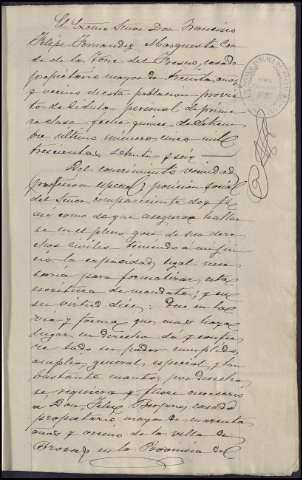 El Excmo Señor Don Francisco
Felipe Fernandez Marquesta Con-
de de la Torre del Fresno, casado
propietario mayor de treinta años
y vecino de esta poblacion provis-
to de Cédula personal de prime-
ra clase fecha quince de Setiem-
bre último número cinco mil
trescientos setenta y seis
Del conocimiento vecindad
profesion especial y posicion social
del Señor compareciente doy fé
asi como de que asegura hallar-
se en el pleno goce de sus dere-
chos civiles teniendo á mi jui-
cio la capacidad legal nece-
saria para formalizar esta
escritura de mandato; y en
su virtud dice: Que en la
via y forma que mas haya
lugar en derecho dá y confie-
re todo su poder cumplido,
amplio, general, especial y tan
bastante cuanto por derecho
se requiera y fuere necesario
á Don Felix casado
propietario mayor de cuarenta
años y vecino de la villa de
Brozas en la Provincia de